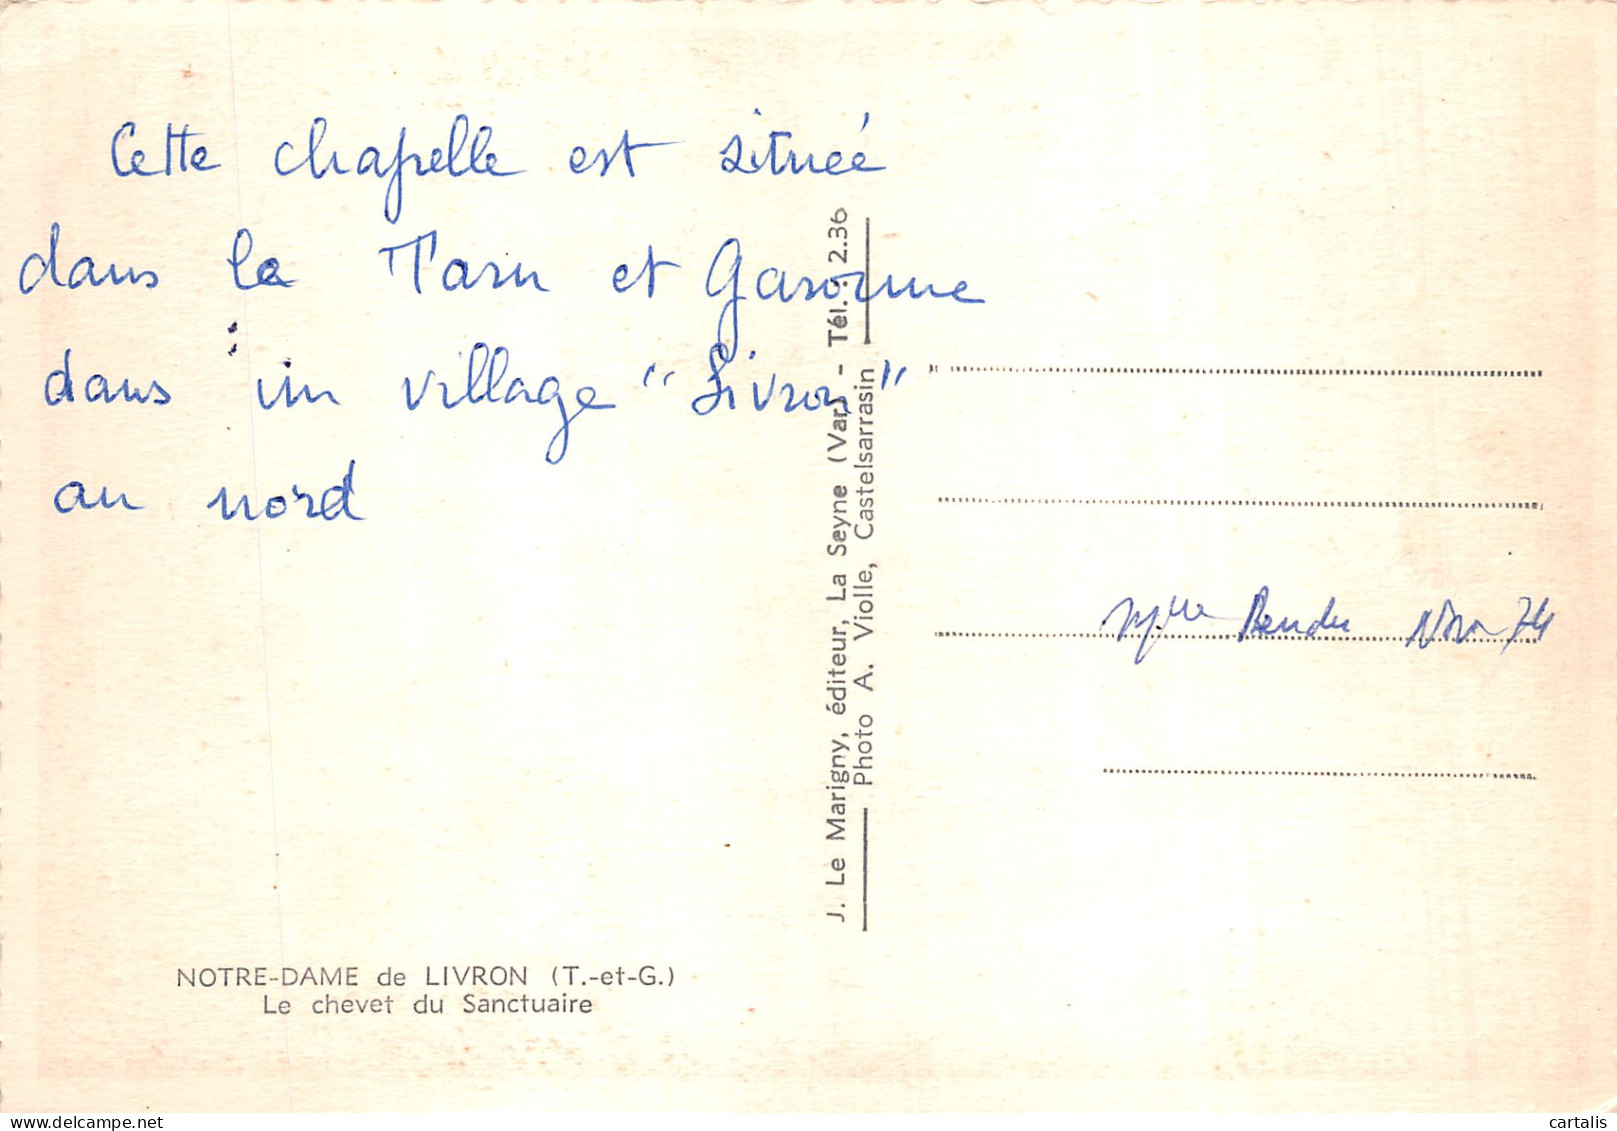 Cette chapelle est située
dans le Tarn et Garonne
dans un village "Livron"
au nord
J. Le Marigny, éditeur, La Seyne (Var) - Tél. : 2.36
Photo A. Violle, Castelsarrasin
Mlle Nov 74
NOTRE-DAME de LIVRON (T.-et-G.)
Le chevet du Sanctuaire
cartalis